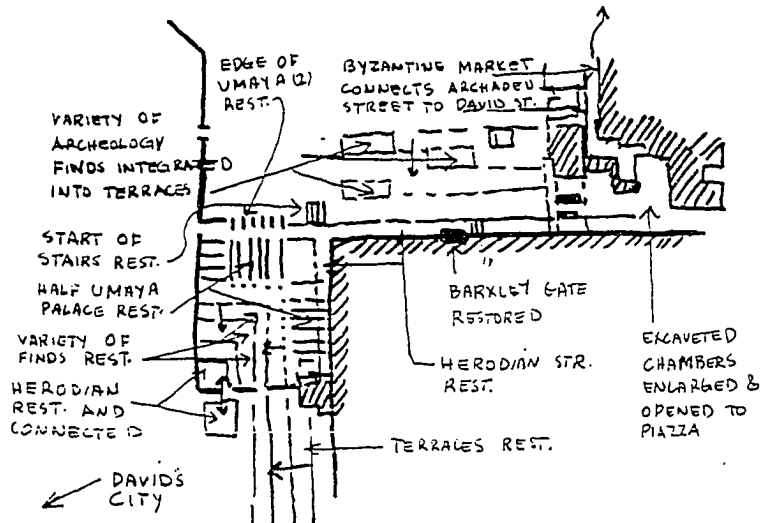 EDGE OF
UMAYA (2)
REST.
BYZANTINE MARKET
CONNECTS ARCHADED
STREET TO DAVID ST.
VARIETY OF
ARCHEOLOGY
FINDS INTEGRATED
INTO TERRACES
START OF
STAIRS REST.
HALF UMAYA
PALACE REST.
VARIETY OF
FINDS REST.
HERODIAN
REST. AND
CONNECTED
BARXLEY GATE
RESTORED
HERODIAN STR.
REST.
EXCAVETED
CHAMBERS
ENLARGED &
OPENED TO
PIAZZA
TERRACES REST.
DAVID'S
CITY